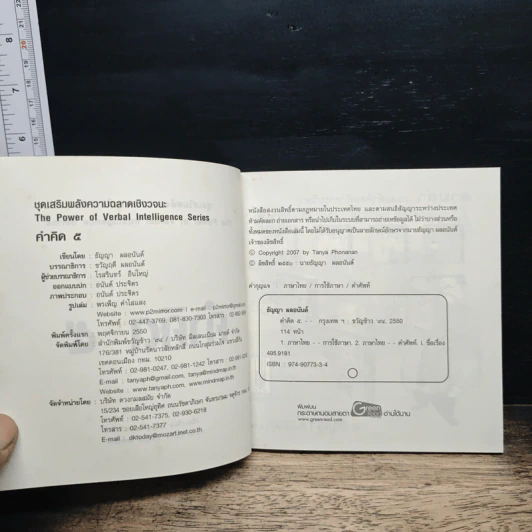 ชุดเสริมพลังความฉลาดเชิงวจนะ
The Power of Verbal Intelligence Series
คำคิด ๕
เขียนโดย : ธัญญา ผลอนันต์
บรรณาธิการ : ขวัญฤดี ผลอนันต์
ผู้ช่วยบรรณาธิการ : โรสรินทร์
ออกแบบปก : อนันต์ ประจิตร
ภาพประกอบ : อนันต์ ประจิตร
รูปเล่ม : พรเพ็ญ คำโฮแสง
Website :
โทรศัพท์ : 02-447-3769, 081-830-7303
พิมพ์ครั้งแรก : พฤศจิกายน 2550
จัดพิมพ์โดย : สำนักพิมพ์ขวัญข้าว '๙๔
176/381
เขตดอนเมือง กทม. 10210
โทรศัพท์ : 02-981-0247, 02-981-1242
E-mail : tanyaph@gmail.com,
Website : www.tanyaph.com, www.mindmap.in.th
จัดจำหน่ายโดย : บริษัท ดวงกมลสมัย จำกัด
15/234
โทรศัพท์ : 02-541-7375, 02-930-6218
โทรสาร : 02-541-7377
E-mail : dktoday@mozart.inet.co.th
หนังสือสงวนลิขสิทธิ์ตามกฎหมายในประเทศไทย และตามสนธิสัญญาระหว่างประเทศ
ห้ามคัดลอก ถ่ายเอกสาร หรือนำไปเก็บในระบบที่สามารถถ่ายเทข้อมูลได้ ไม่ว่าบางส่วนหรือ
ทั้งหมดของหนังสือเล่มนี้ โดยไม่ได้รับอนุญาตเป็นลายลักษณ์อักษรจากนายธัญญา ผลอนันต์
เจ้าของลิขสิทธิ์
© Copyright 2007 by Tanya Phonanan
© ลิขสิทธิ์ ๒๕๕๐ : นายธัญญา ผลอนันต์
คำกุญแจ : ภาษาไทย / การใช้ภาษา / คำศัพท์
ธัญญา ผลอนันต์
คำคิด ๕. - - กรุงเทพ ฯ : ขวัญข้าว '๙๔, 2550
114 หน้า
1. ภาษาไทย - - การใช้ภาษา, 2. ภาษาไทย - - คำศัพท์ I. ชื่อเรื่อง
495.9181
ISBN : 974-90773-3-4
พิมพ์บน
กระดาษถนอมสายตา Green Read อ่านได้นาน
www.greenread.com